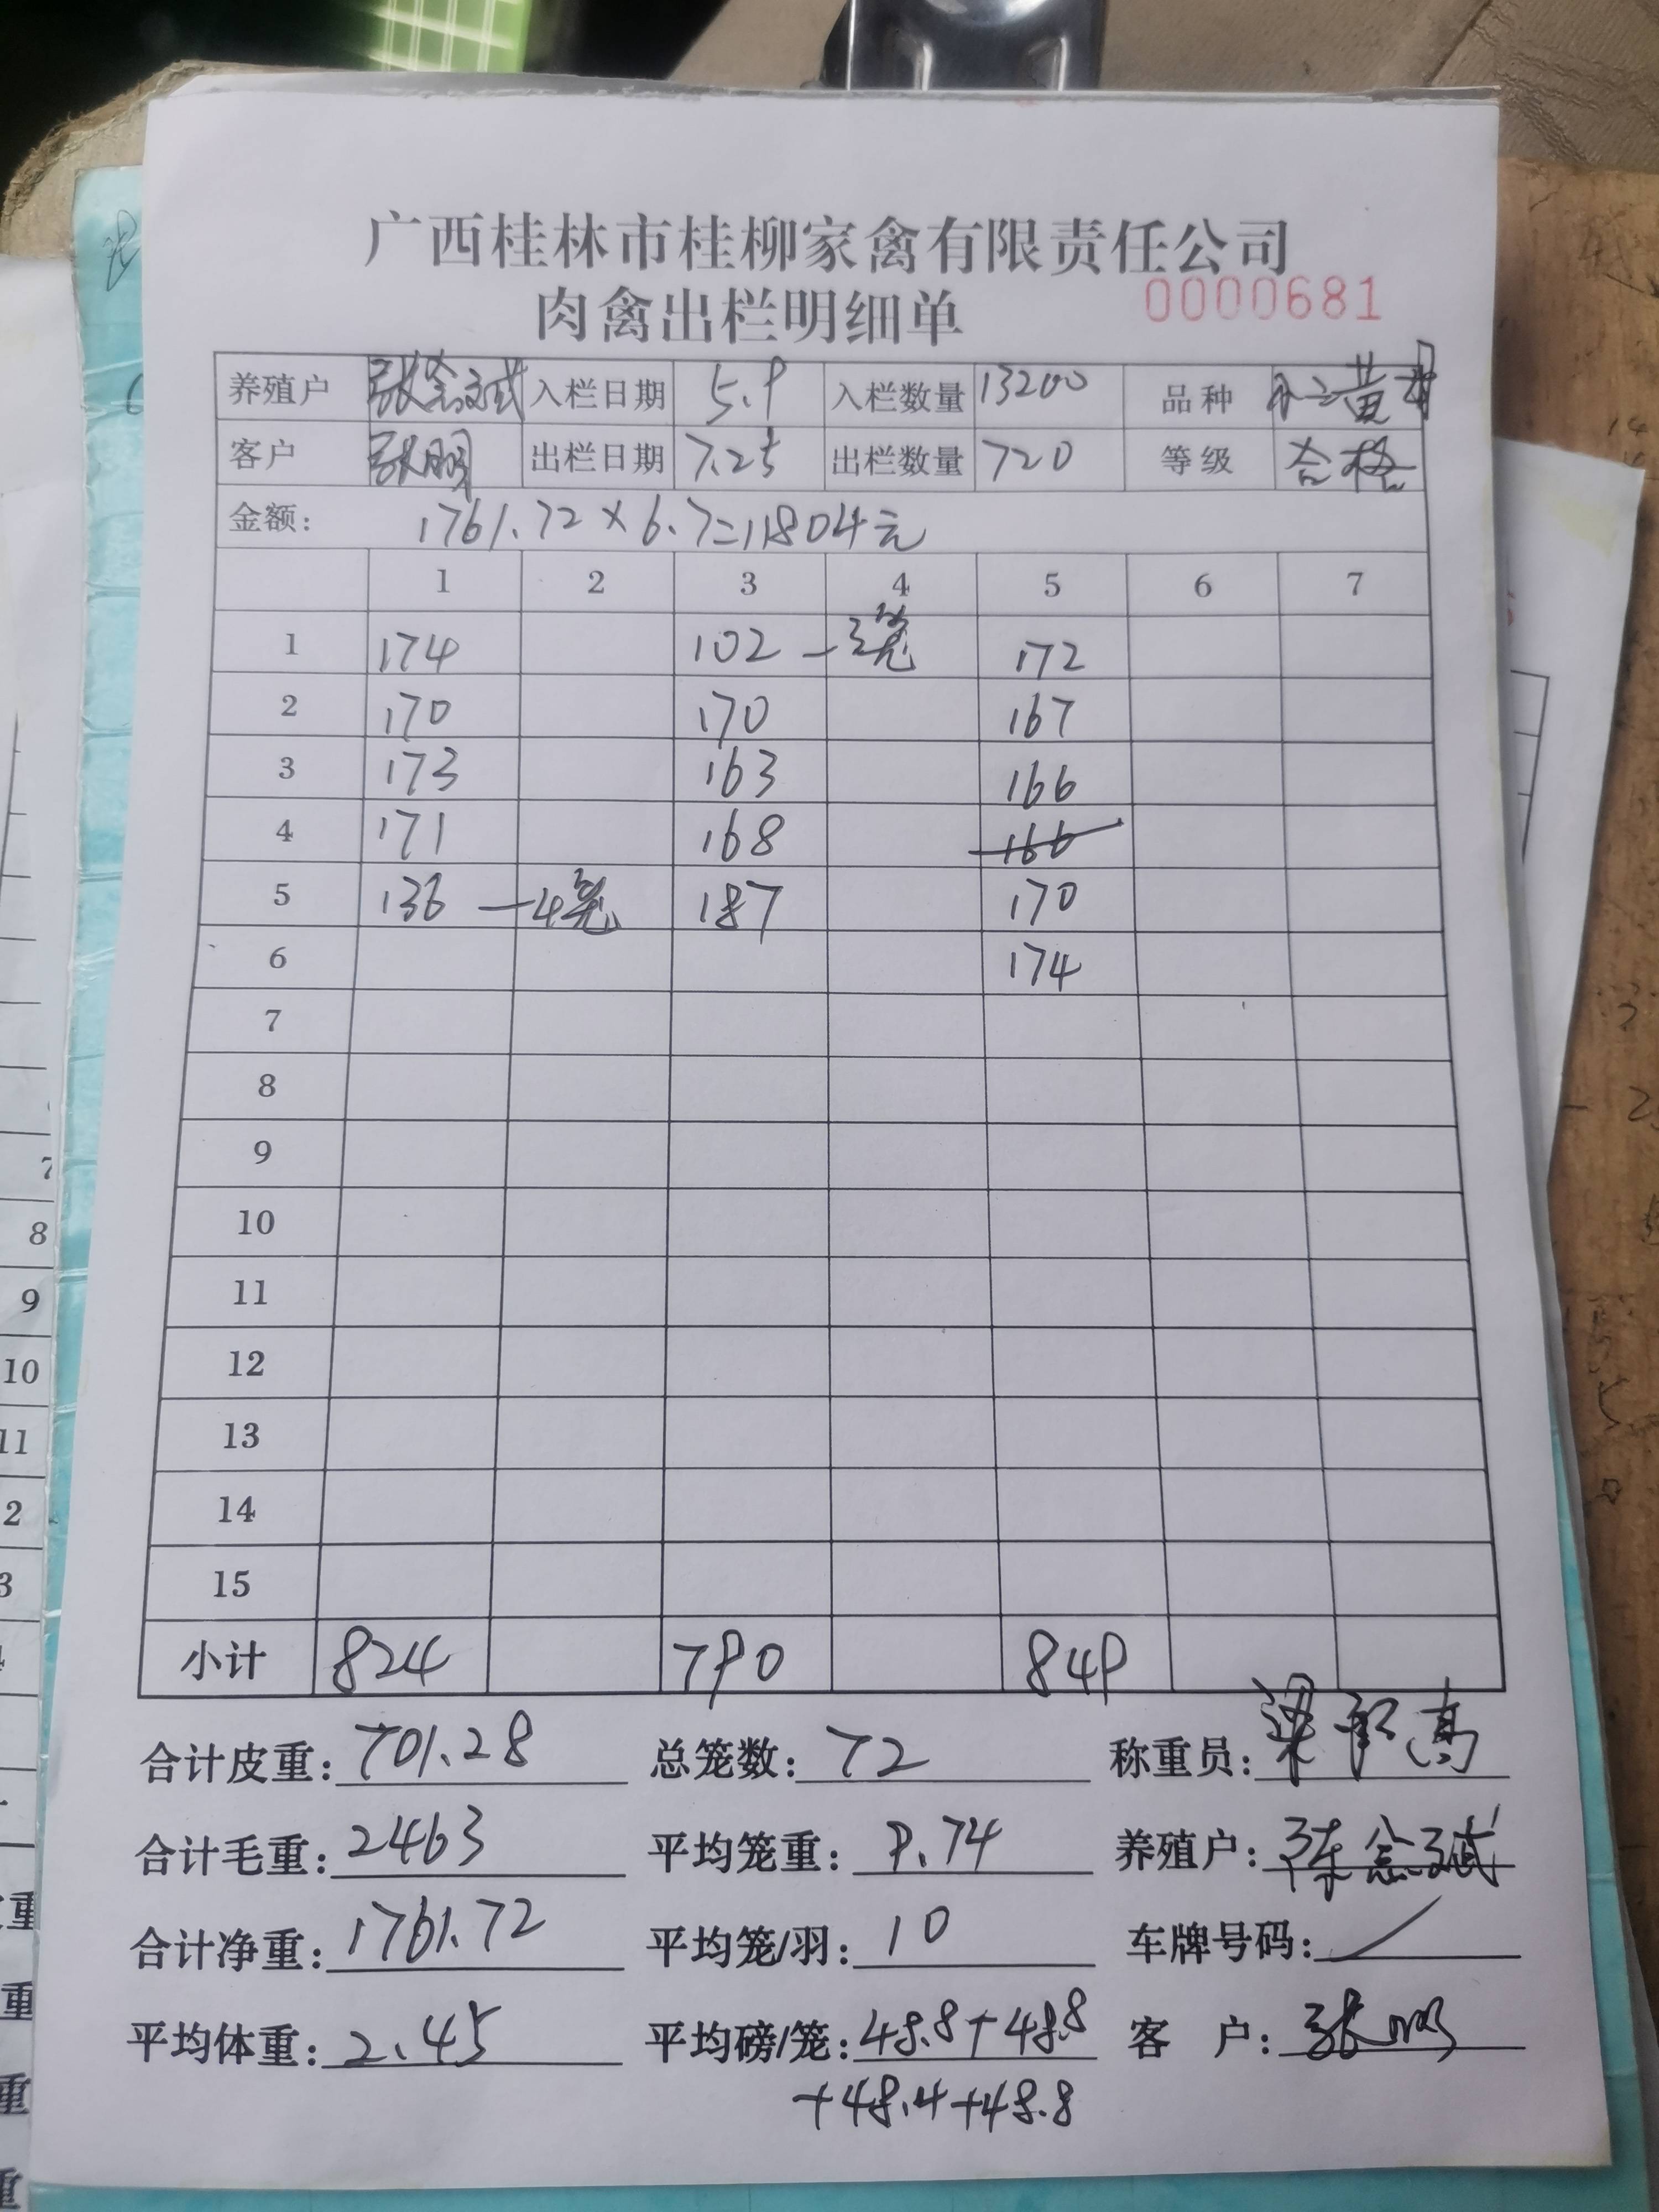 广西桂林市桂柳家禽有限责任公司
肉禽出栏明细单 0000681
养殖户 入栏日期 5.9 入栏数量 13200 品种
客户 张鹏 出栏日期 7.25 出栏数量 720 等级 合格
金额: 1761.72×6.7=11804元
1 2 3 4 5 6 7
1 174 102 —3笼 172
2 170 170 167
3 173 163 166
4 171 168 166
5 136 —4笼 187 170
6 174
7
8
9
10
11
12
13
14
15
小计 824 790 849
合计皮重: 701.28 总笼数: 72 称重员:
合计毛重: 2463 平均笼重: 9.74 养殖户:
合计净重: 1761.72 平均笼/羽: 10 车牌号码: /
平均体重: 2.45 平均磅/笼: 48.8+48.8 客 户: 张鹏
+48.4+48.8
7
8
9
10
11
2
3
重
重
重
重